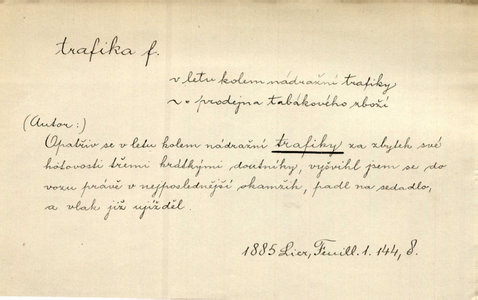 trafika f.
v letu kolem nádražní trafiky
~ prodejna tabákového zboží
(Autor:)
Opatřiv se v letu kolem nádražní trafiky za zbytek své
hotovosti třemi krátkými doutníky, vyšvihl jsem se do
vozu právě v nejposlednější okamžik, padl na sedadlo,
a vlak již ujížděl.
1885 Lier, Feuill. 1. 144, 8.